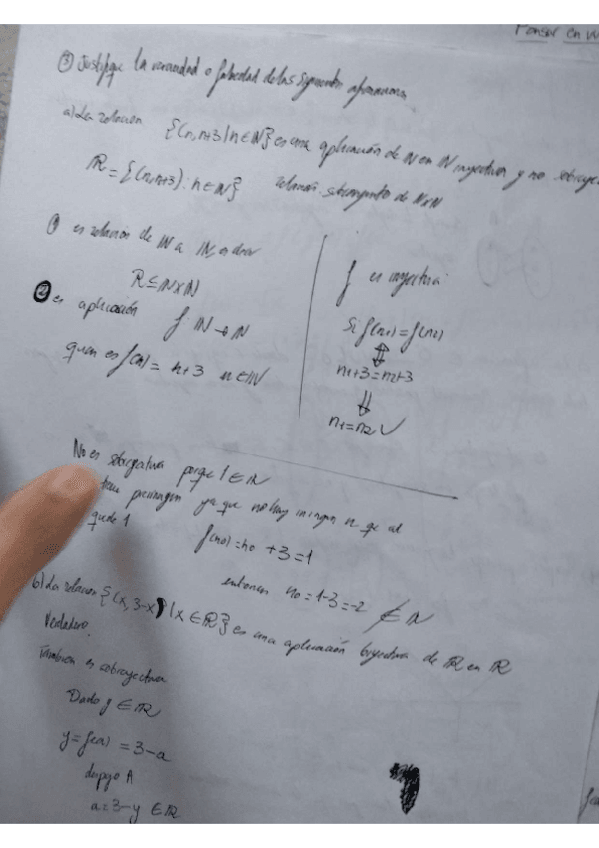 Pensar en
③ Justifique la veracidad o falsedad de las siguientes afirmaciones
a) La relación {(n,n+3 | n∈ℕ} es una aplicación de ℕ en ℕ inyectiva y no sobreye
R={(n,n+3): n∈ℕ} relación subconjunto de ℕxℕ
① es relación de ℕ a ℕ, es decir
R⊆ℕxℕ
② es aplicación
f ℕ→ℕ
quien es f(n)= n+3 n∈ℕ
f es inyectiva
Si f(n1)=f(n2)
⇕
n1+3=n2+3
⇓
n1=n2 ✓
No es sobreyectiva porque 1∈ℕ
tiene preimagen ya que no hay ningún n qe al
quede 1
f(n0)=n0 +3=1
entonces n0=1-3=-2 ∉ℕ
b) La relación {(x,3-x) | x∈ℝ} es una aplicación biyectiva de ℝ en ℝ
Verdadero,
También es sobreyectiva
Dado y∈ℝ
y=f(a) =3-a
despejo A
a=3-y ∈ℝ